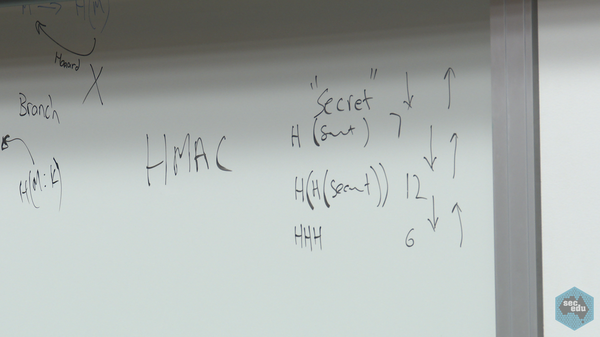 H(M)
Hard
X
Branch
H(M:K)
HMAC
"Secret"
H (Secret) 7
H(H(Secret)) 12
HHH 6
sec
edu